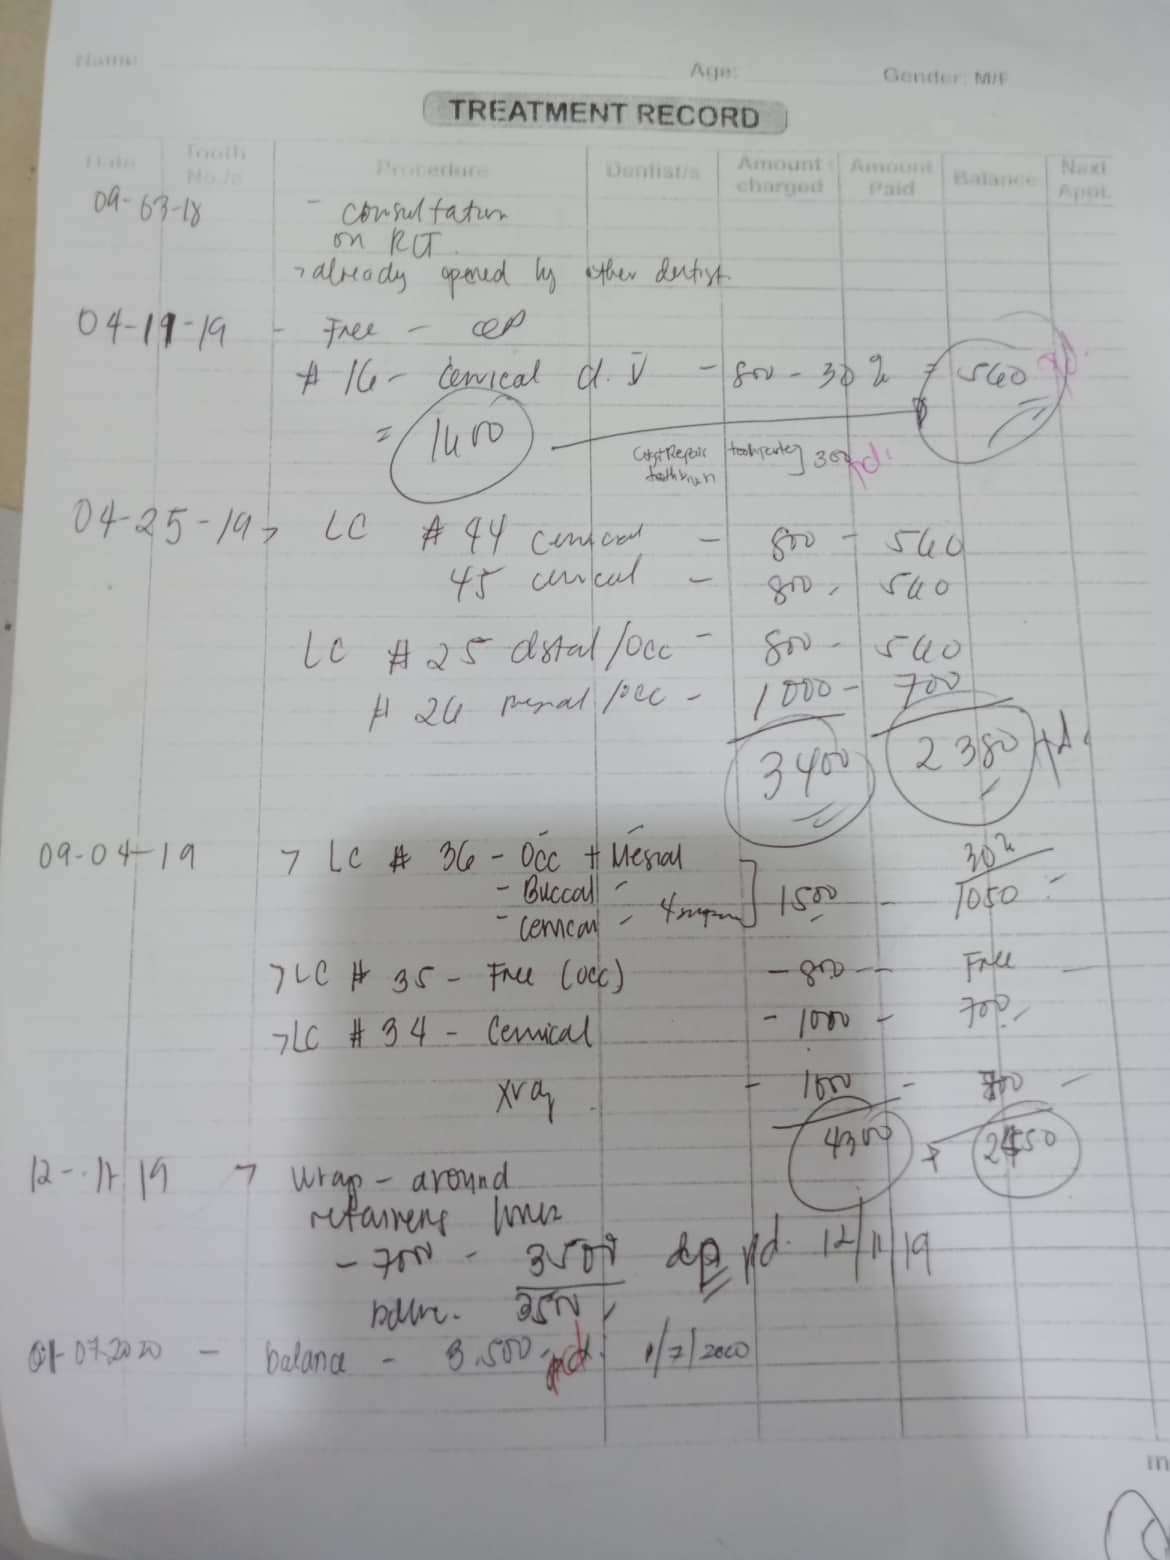 Name: Age: Gender: M/F
TREATMENT RECORD
Date Tooth No./s Procedure Dentist/s Amount charged Amount Paid Balance Next Appt.
09-03-18 - consultation
on RCT
> already opened by other dentist
04-11-19 - Free - 
# 16 - Cervical cl. V - 800 - 30% = 560 pd.
= 1400
300 pd.
04-25-19 > LC # 44 cervical - 800 - 560
45 cervical - 800 - 560
LC # 25 distal/occ - 800 - 560
# 26 mesial/occ - 1000 - 700
3400 2380 pd.
09-04-19 > LC # 36 - Occ + Mesial
- Buccal
- Cervical 1500 - 30% 1050
> LC # 35 - Free (occ) - 800 - Free
> LC # 34 - Cervical - 1000 - 700
xray - 1000 - 700
4300 2450
12-11-19 > Wrap-around
retainers
- 7000 - 3500 dp pd. 12/11/19
3500
01-07-2020 - balance - 3,500 pd. 1/7/2020
in